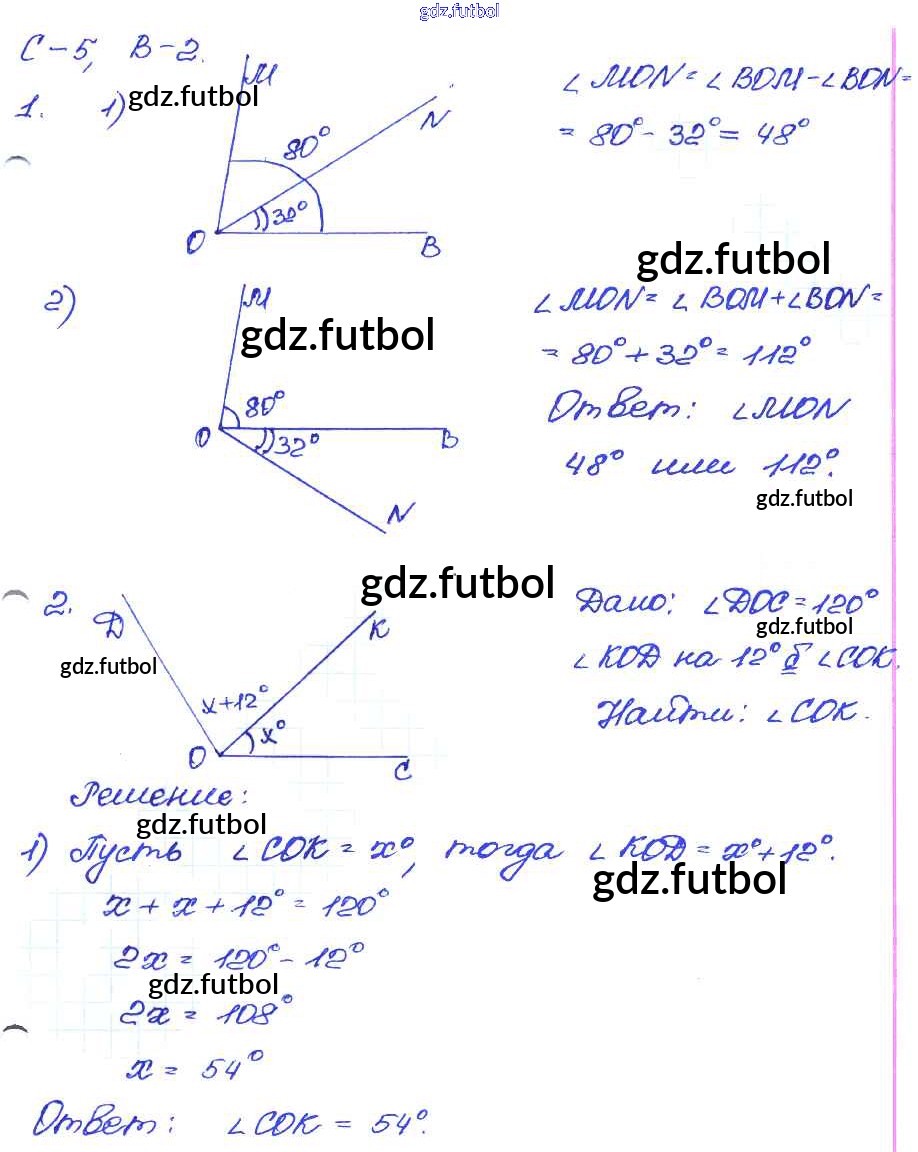 gdz.futbol
С-5, В-2.
1. 1) gdz.futbol
M
N
80°
32°
O
B
∠MON = ∠BOM - ∠BON =
= 80° - 32° = 48°
gdz.futbol
2)
M
gdz.futbol
80°
O
32°
B
N
∠MON = ∠BOM + ∠BON =
= 80° + 32° = 112°
Ответ: ∠MON
48° или 112°.
gdz.futbol
gdz.futbol
2.
Д
K
gdz.futbol
x+12°
x°
O
C
Дано: ∠ДОС = 120°
gdz.futbol
∠КОД на 12° б ∠СОК.
Найти: ∠СОК.
Решение:
gdz.futbol
1) Пусть ∠СОК = x°, тогда ∠КОД = x°+12°.
gdz.futbol
x + x + 12° = 120°
2x = 120° - 12°
gdz.futbol
2x = 108°
x = 54°
Ответ: ∠СОК = 54°.